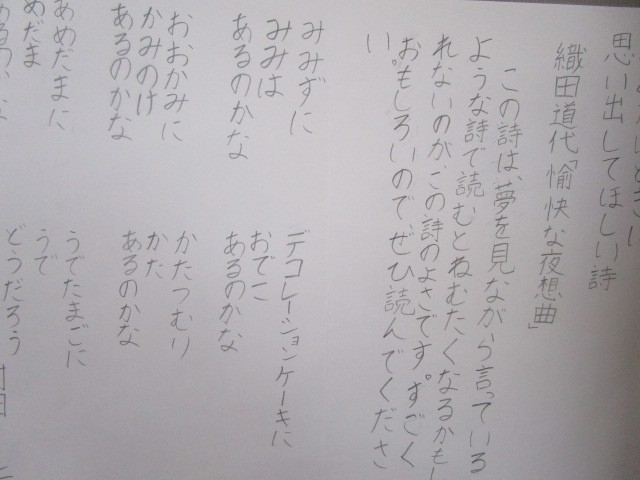 思い出してほしい詩
織田道代「愉快な夜想曲」
この詩は、夢を見ながら言っている
ような詩で読むとねむたくなるかもし
れないのが、この詩のよさです。すごく
おもしろいので、ぜひ読んでくださ
い。
みみずに
みみは
あるのかな
おおかみに
かみのけ
あるのかな
あめだまに
めだま
デコレーションケーキに
おでこ
あるのかな
かたつむり
かた
あるのかな
うでたまごに
うで
どうだろう